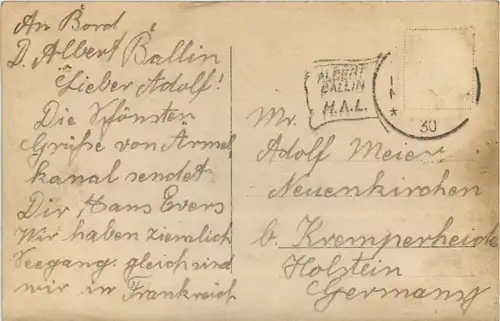 An Bord
D. Albert Ballin
Lieber Adolf!
Die Schönsten
Grüße von Armel
kanal sendet
Dir Hans Evers
Wir haben ziemlich
Seegang. gleich sind
wir in Frankreich
ALBERT
BALLIN
H.A.L.
30
Mr.
Adolf Meier
Neuenkirchen
b. Kremperheide
Holstein
Germany